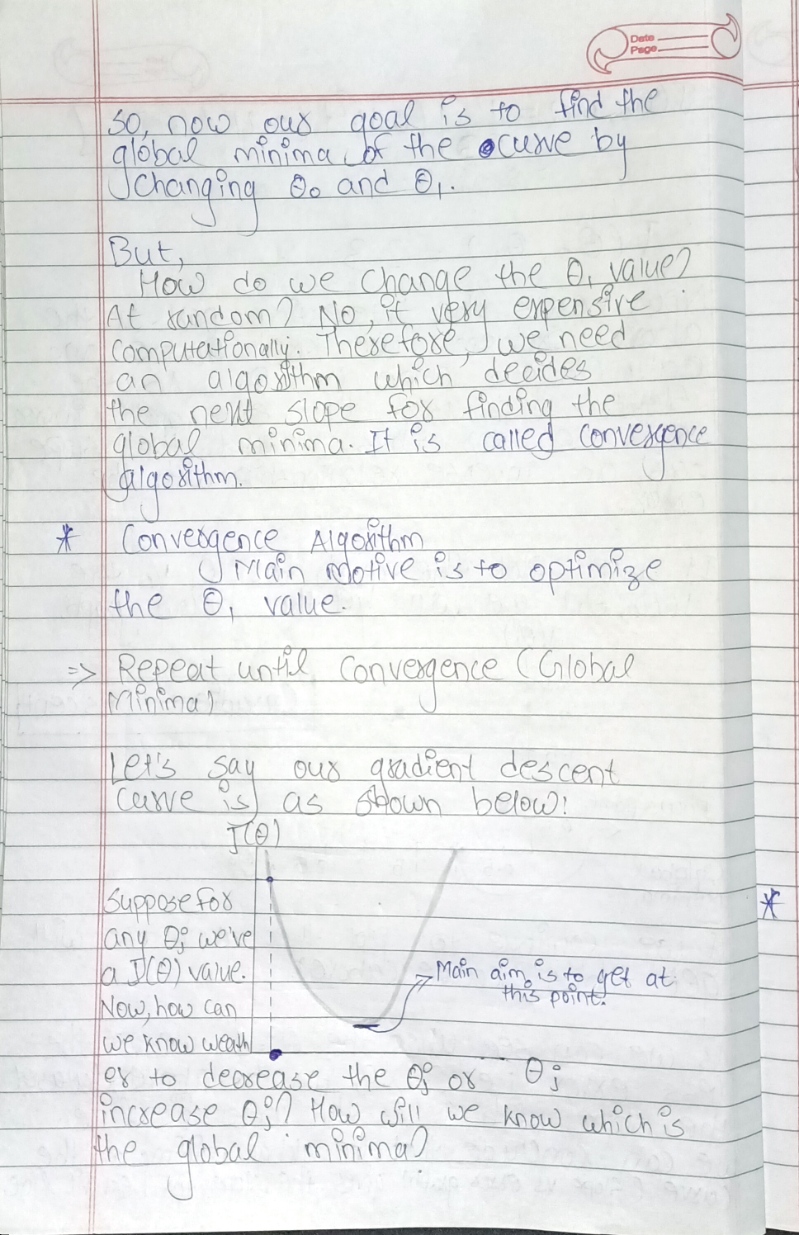 Date
Page
So, now our goal is to find the
global minima of the curve by
changing θ₀ and θ₁.
But,
How do we change the θ₁ value?
At random? No, it very expensive
computationally. Therefore, we need
an algorithm which decides
the next slope for finding the
global minima. It is called convergence
algorithm.
* Convergence Algorithm
Main motive is to optimize
the θ₁ value.
=> Repeat until Convergence (Global
Minima)
Let's say our gradient descent
curve is as shown below:
J(θ)
Suppose for
any θj we've
a J(θ) value.
Now, how can
we know weath
er to decrease the θj or
increase θj? How will we know which is
the global minima?
Main aim is to get at
this point.
θj
*